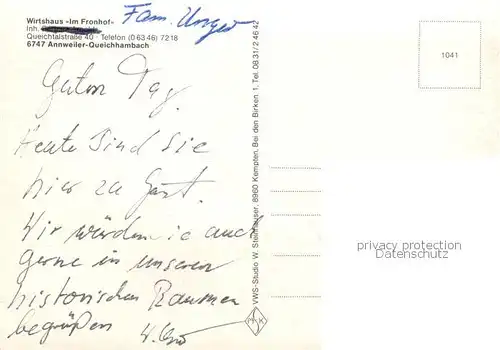 Wirtshaus »Im Fronhof«
Fam. Unger
Inh.
Queichtalstraße 40 · Telefon (0 63 46) 72 18
6747 Annweiler-Queichhambach
Guten Tag,
Heute sind Sie
hier zu Gast.
Wir würden Sie auch
gerne in unseren
historischen Räumen
begrüßen
VWS-Studio W. Steinhauser, 8960 Kempten, Bei den Birken 1, Tel. 08 31/2 46 42
1041
privacy protection
Datenschutz